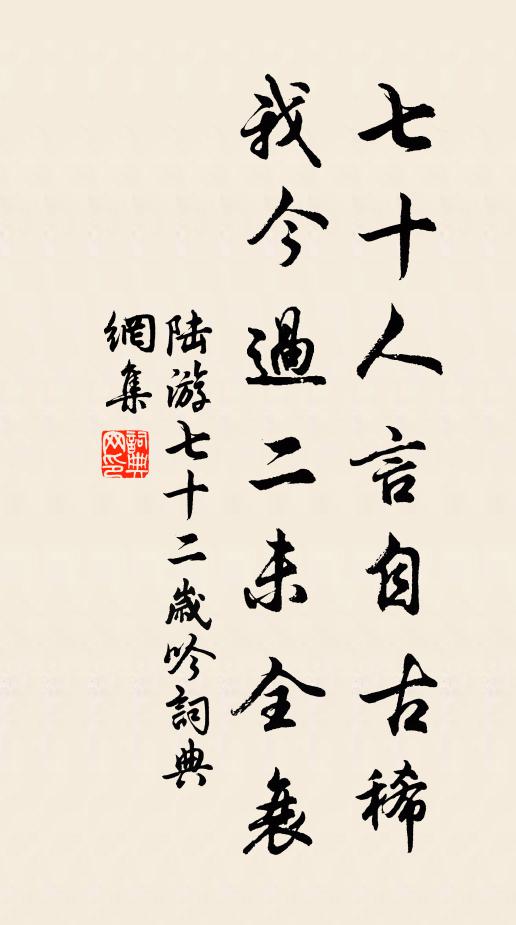 七十人言自古稀
我今過二未全衰
陆游七十二歲吟詞典
網集
詞典
网印